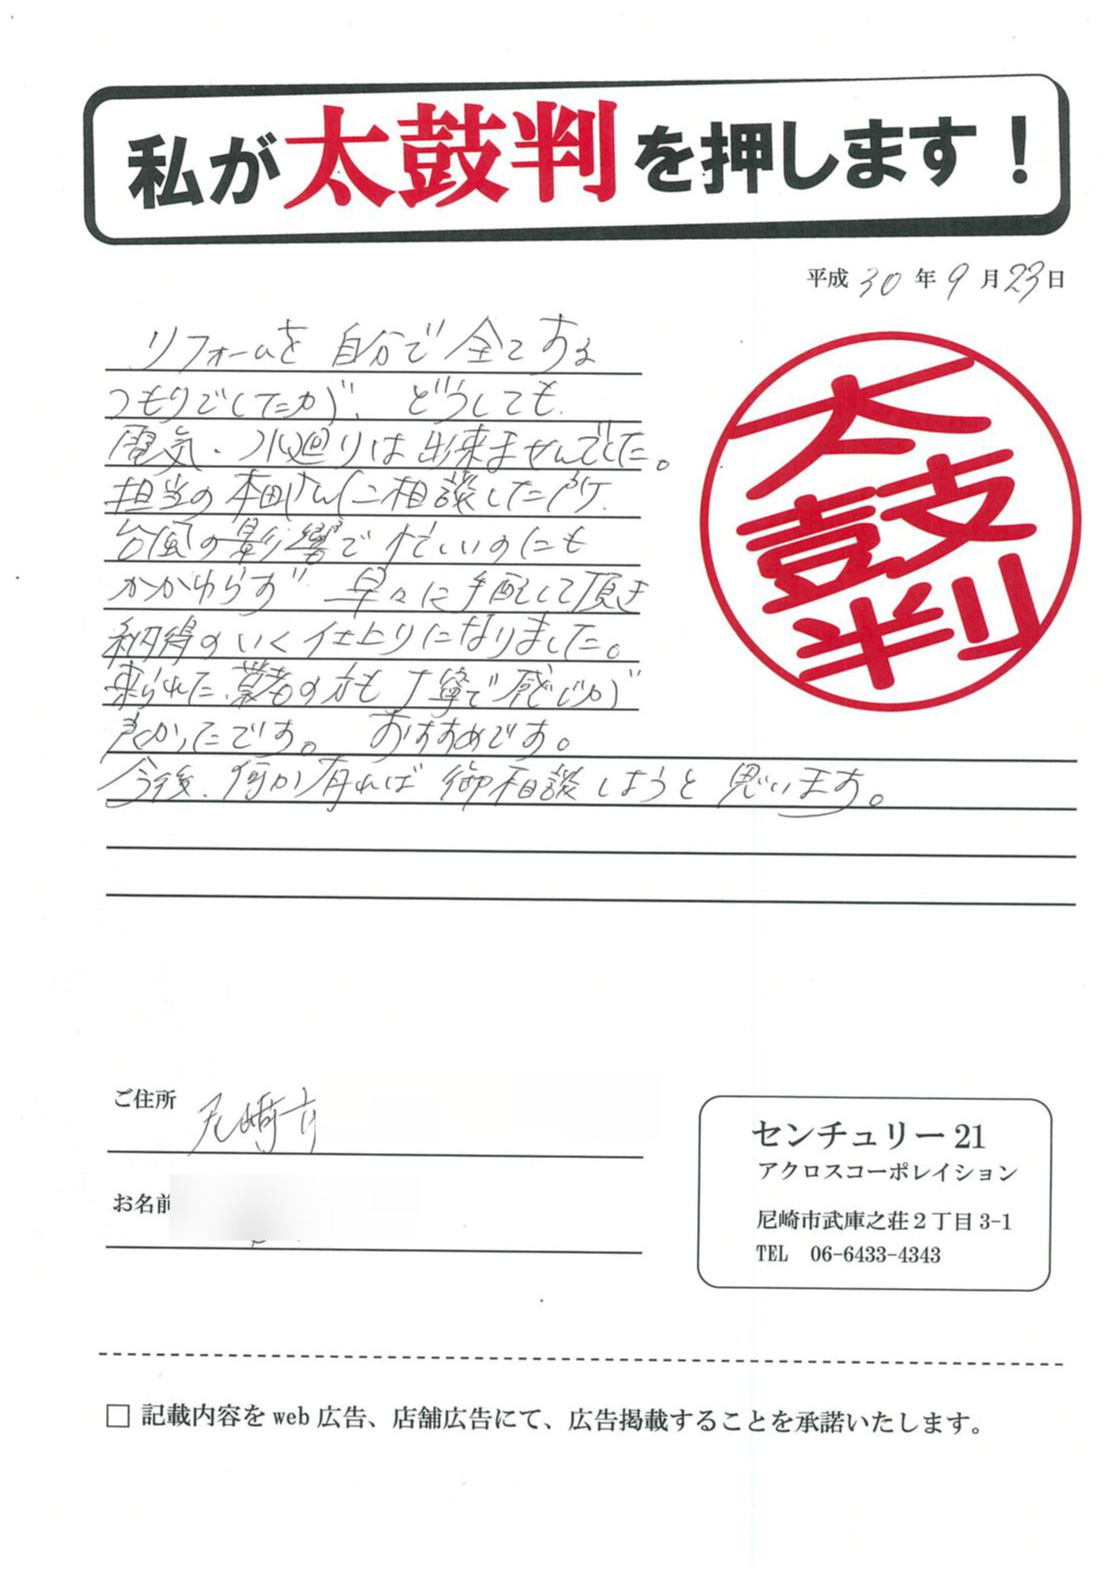 私が太鼓判を押します！
平成30年9月23日
リフォームを 自分で全てする
つもりでしたが、どうしても
電気・水廻りは出来ませんでした。
担当の本田さんに相談した所、
台風の影響で忙しいのにも
かかわらず 早々に手配して頂き
納得のいく仕上りになりました。
来られた業者の方も丁寧で感じが
良かったです。 おすすめです。
今後、何か有れば 御相談しようと思います。
太鼓判
ご住所 尼崎市
お名前
センチュリー21
アクロスコーポレイション
尼崎市武庫之荘2丁目3-1
TEL 06-6433-4343
□ 記載内容をweb広告、店舗広告にて、広告掲載することを承諾いたします。